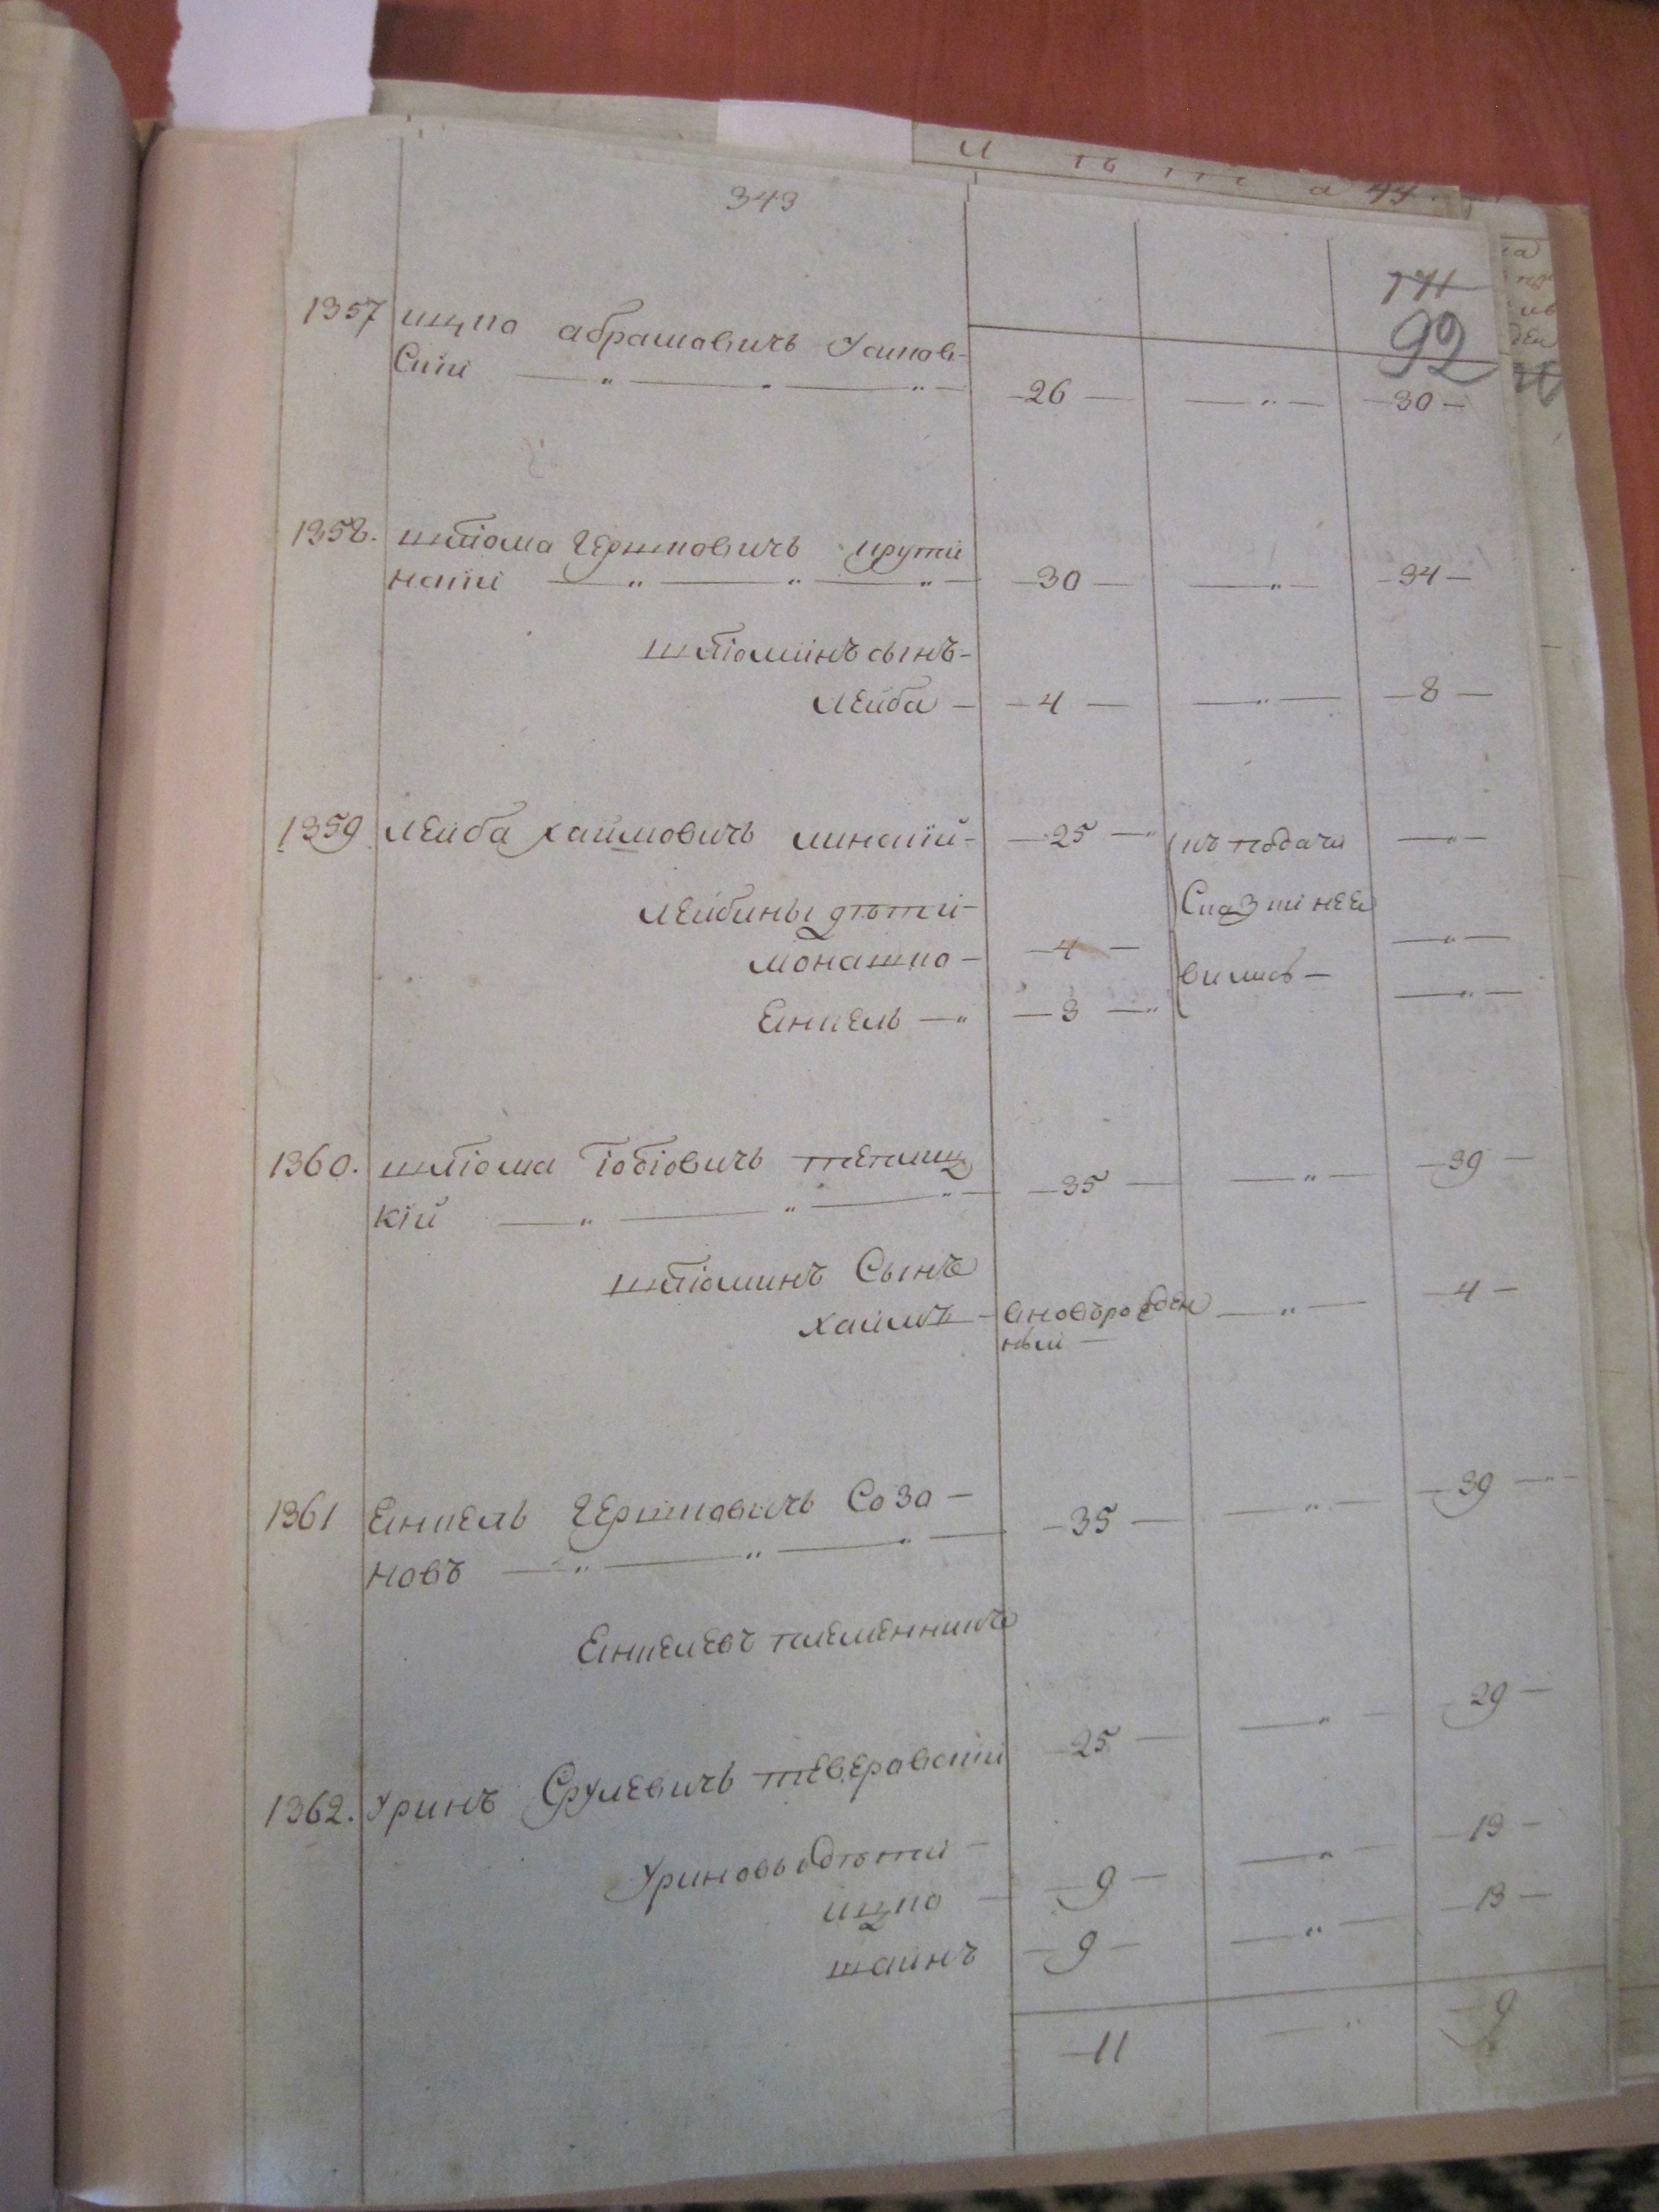 343
741
92
1357 ицко абрамовичъ Усанов-
Скій — „ — „ — „ — 26 — — „ — 30 —
1358. шліома Гершковичъ крути
нскій — „ — „ — „ — 30 — — „ — 34 —
шліоминъ сынъ —
лейба — 4 — — „ — 8 —
1359 лейба хаимовичъ минскій — 25 — къ подачи — „ —
лейбины дѣти — Сказки неея
монашко — 4 — — „ —
вились —
Енкель — „ — 3 — „ — „ —
1360. шліома Тобіовичъ
кій — „ — „ — „ — 35 — — „ — 39 —
шліоминъ Сынъ
хаимъ — вновьрожден — „ — 4 —
ный —
1361 Енкель Гершковичъ Созо — 39 —
новъ — „ — „ — „ — 35 — — „ —
Енкелевъ племенникъ
1362. Уринъ Срулевичъ теверовскій 25 — — „ — 29 —
Уриновы дѣти —
ицко — 9 — — „ — 13 —
шаинъ — 9 — — „ — 13 —
— 11 — „ 9